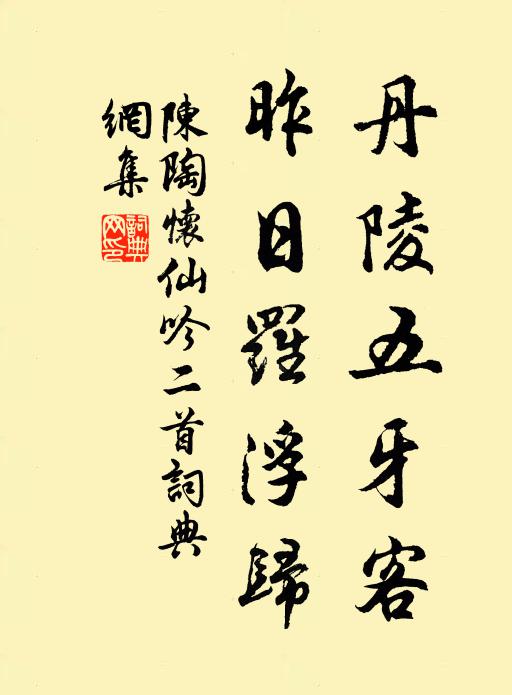 丹陵五牙客
昨日羅浮歸
陳陶懷仙吟二首詞典
網集
詞典
网印